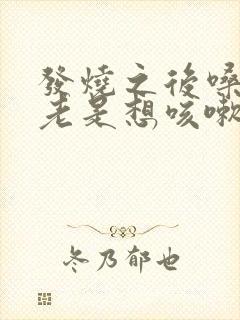 發燒之後嗓
老是想咳嗽
冬乃郁也